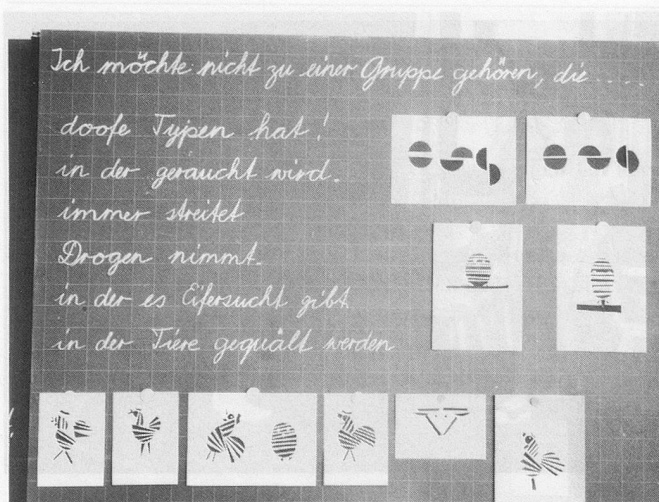 Ich möchte nicht zu einer Gruppe gehören, die .....
doofe Typen hat!
in der geraucht wird.
immer streitet
Drogen nimmt.
in der es Eifersucht gibt
in der Tiere gequält werden